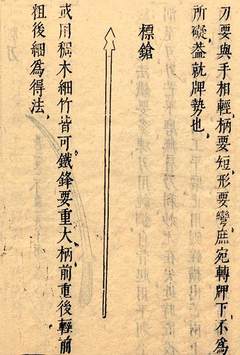 刃要與手相輕柄要短形要彎庶宛轉牌下不爲
所礙葢就牌勢也
標鎗
或用稠木細竹皆可鐵鋒要重大柄前重後輕前
粗後細爲得法